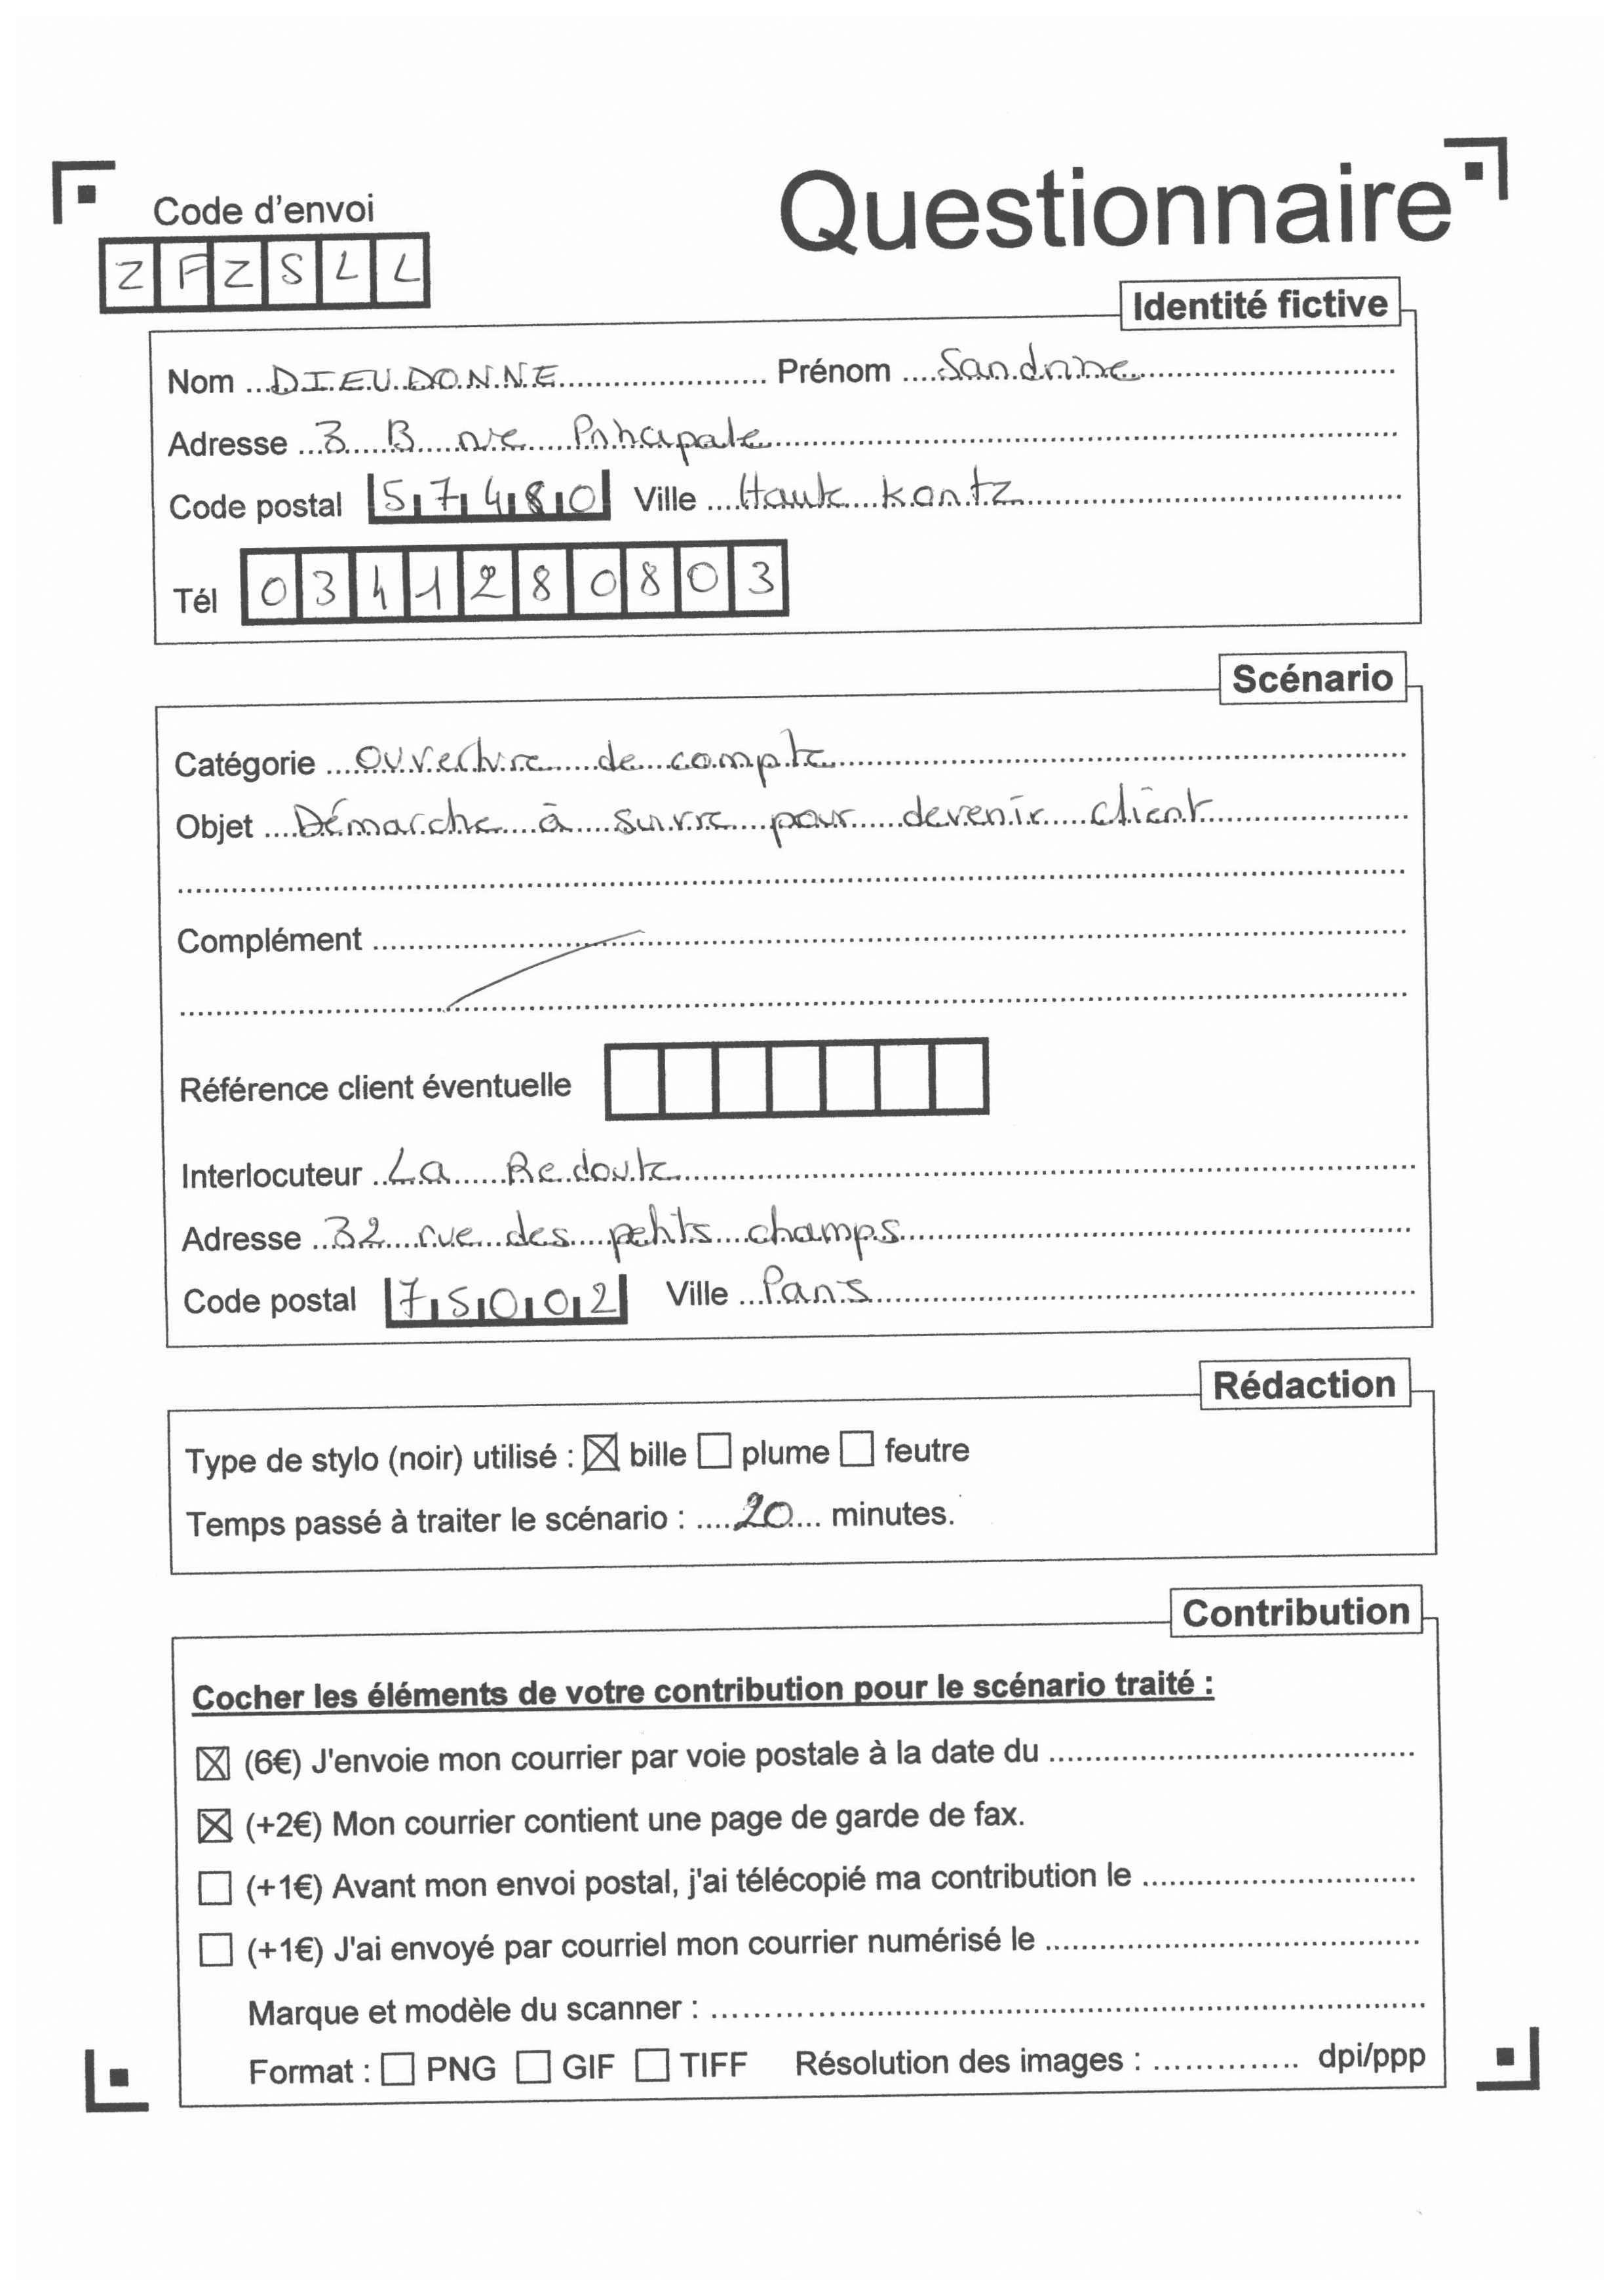 Questionnaire
Code d'envoi
ZFZSLL
Identité fictive
Nom DIEUDONNE Prénom Sandrine
Adresse 3 B rue Principale
Code postal 57480 Ville Haute kontz
Tél 0341280803
Scénario
Catégorie Ouverture de compte
Objet Démarche à suivre pour devenir client
Complément
Référence client éventuelle
Interlocuteur La Redoute
Adresse 32 rue des petits champs
Code postal 75002 Ville Paris
Rédaction
Type de stylo (noir) utilisé : ☒ bille ☐ plume ☐ feutre
Temps passé à traiter le scénario : 20 minutes.
Contribution
Cocher les éléments de votre contribution pour le scénario traité :
☒ (6€) J'envoie mon courrier par voie postale à la date du
☒ (+2€) Mon courrier contient une page de garde de fax.
☐ (+1€) Avant mon envoi postal, j'ai télécopié ma contribution le
☐ (+1€) J'ai envoyé par courriel mon courrier numérisé le
Marque et modèle du scanner :
Format : ☐ PNG ☐ GIF ☐ TIFF Résolution des images : dpi/ppp